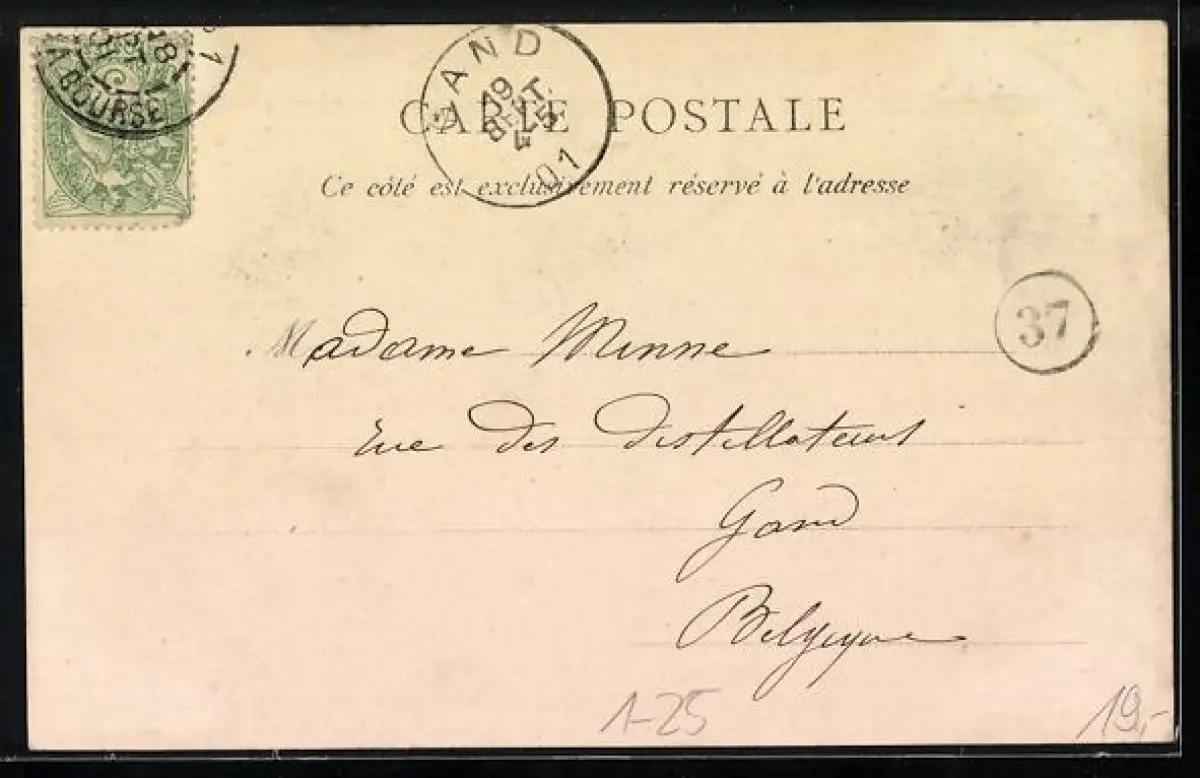 BOURSE
GAND
19
SEPT.
4-5
01
CARTE POSTALE
Ce côté est exclusivement réservé à l'adresse
37
Madame Minne
rue des distillateurs
Gand
Belgique
1-25
19,-